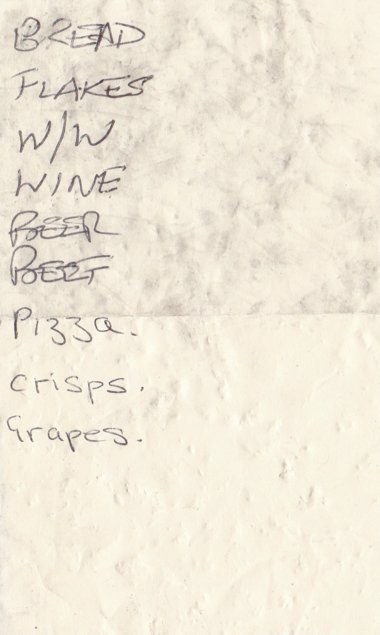 BREAD
FLAKES
W/W
WINE
BEER
BEEF
Pizza.
crisps.
Grapes.